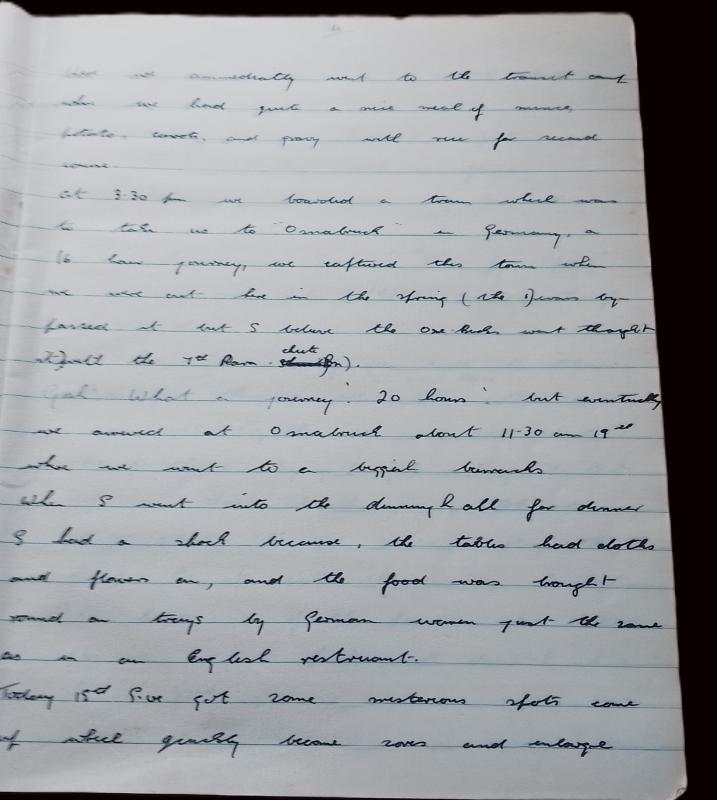 we immediately went to the transit camp
where we had quite a nice meal of mince,
potato, carrots, and gravy with rice for second
course.
At 3-30 pm we boarded a train which was
to take us to "Osnabruck" in Germany, a
16 hour journey, we captured this town when
we were out here in the spring (the Divans by-
passed it but I believe the one-hicks went thought
it with the 7th Para. chute Bn).
Gosh! What a journey! 20 hours! but eventually
we arrived at Osnabruck about 11-30 am 19th
where we went to a biggish barracks
When I went into the dinning hall for dinner
I had a shock because, the tables had cloths
and flowers on, and the food was brought
round on trays by German women just the same
as in an English restruant.
Today 15th I've got some misterious spots some
of which quickly become sores and enlarge